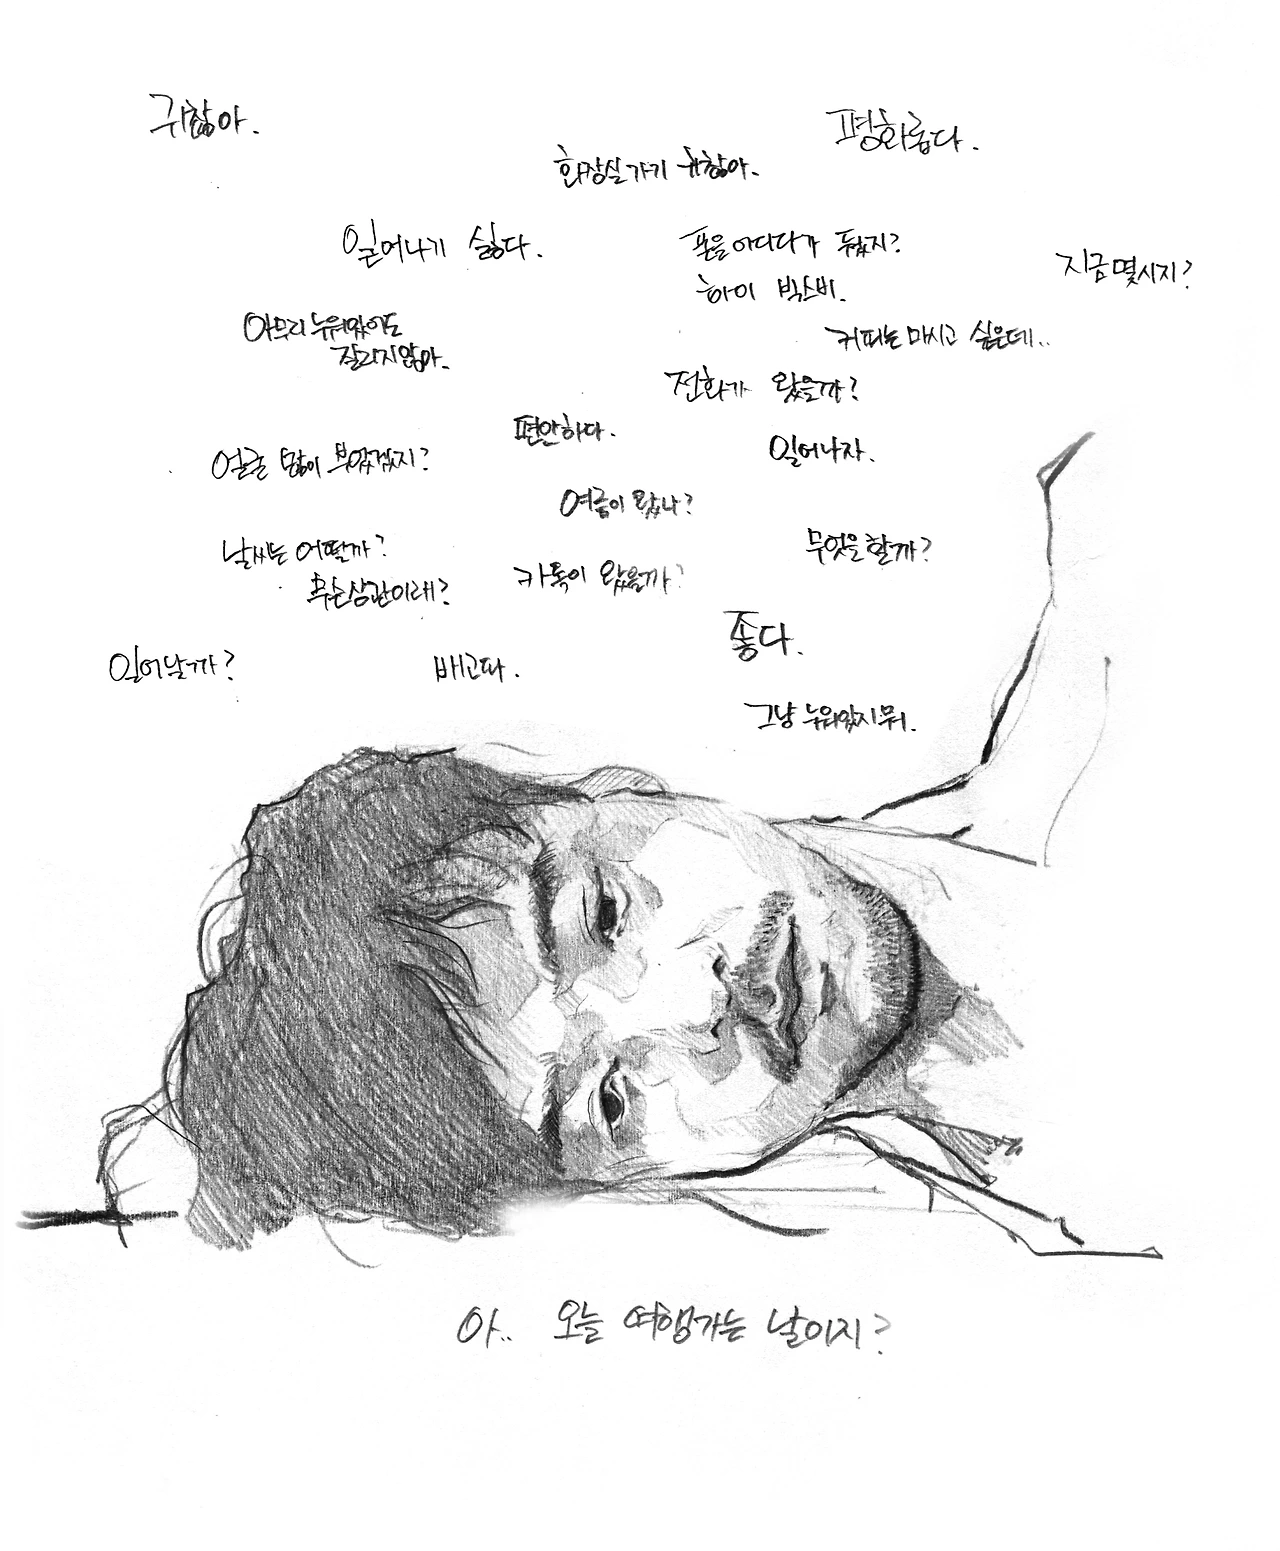 귀찮아.
평화롭다.
화장실가기 귀찮아.
일어나기 싫다.
폰을 어디다가 뒀지?
하이 빅스비.
지금 몇시지?
아무리 누워있어도
질리지않아.
커피는 마시고 싶은데..
전화가 왔을까?
편안하다.
일어나자.
얼굴 많이 부었겠지?
여름이 왔나?
날씨는 어떨까?
무슨상관이래?
카톡이 왔을까?
무엇을할까?
좋다.
일어날까?
배고파.
그냥 누워있지뭐.
아.. 오늘 여행가는 날이지?